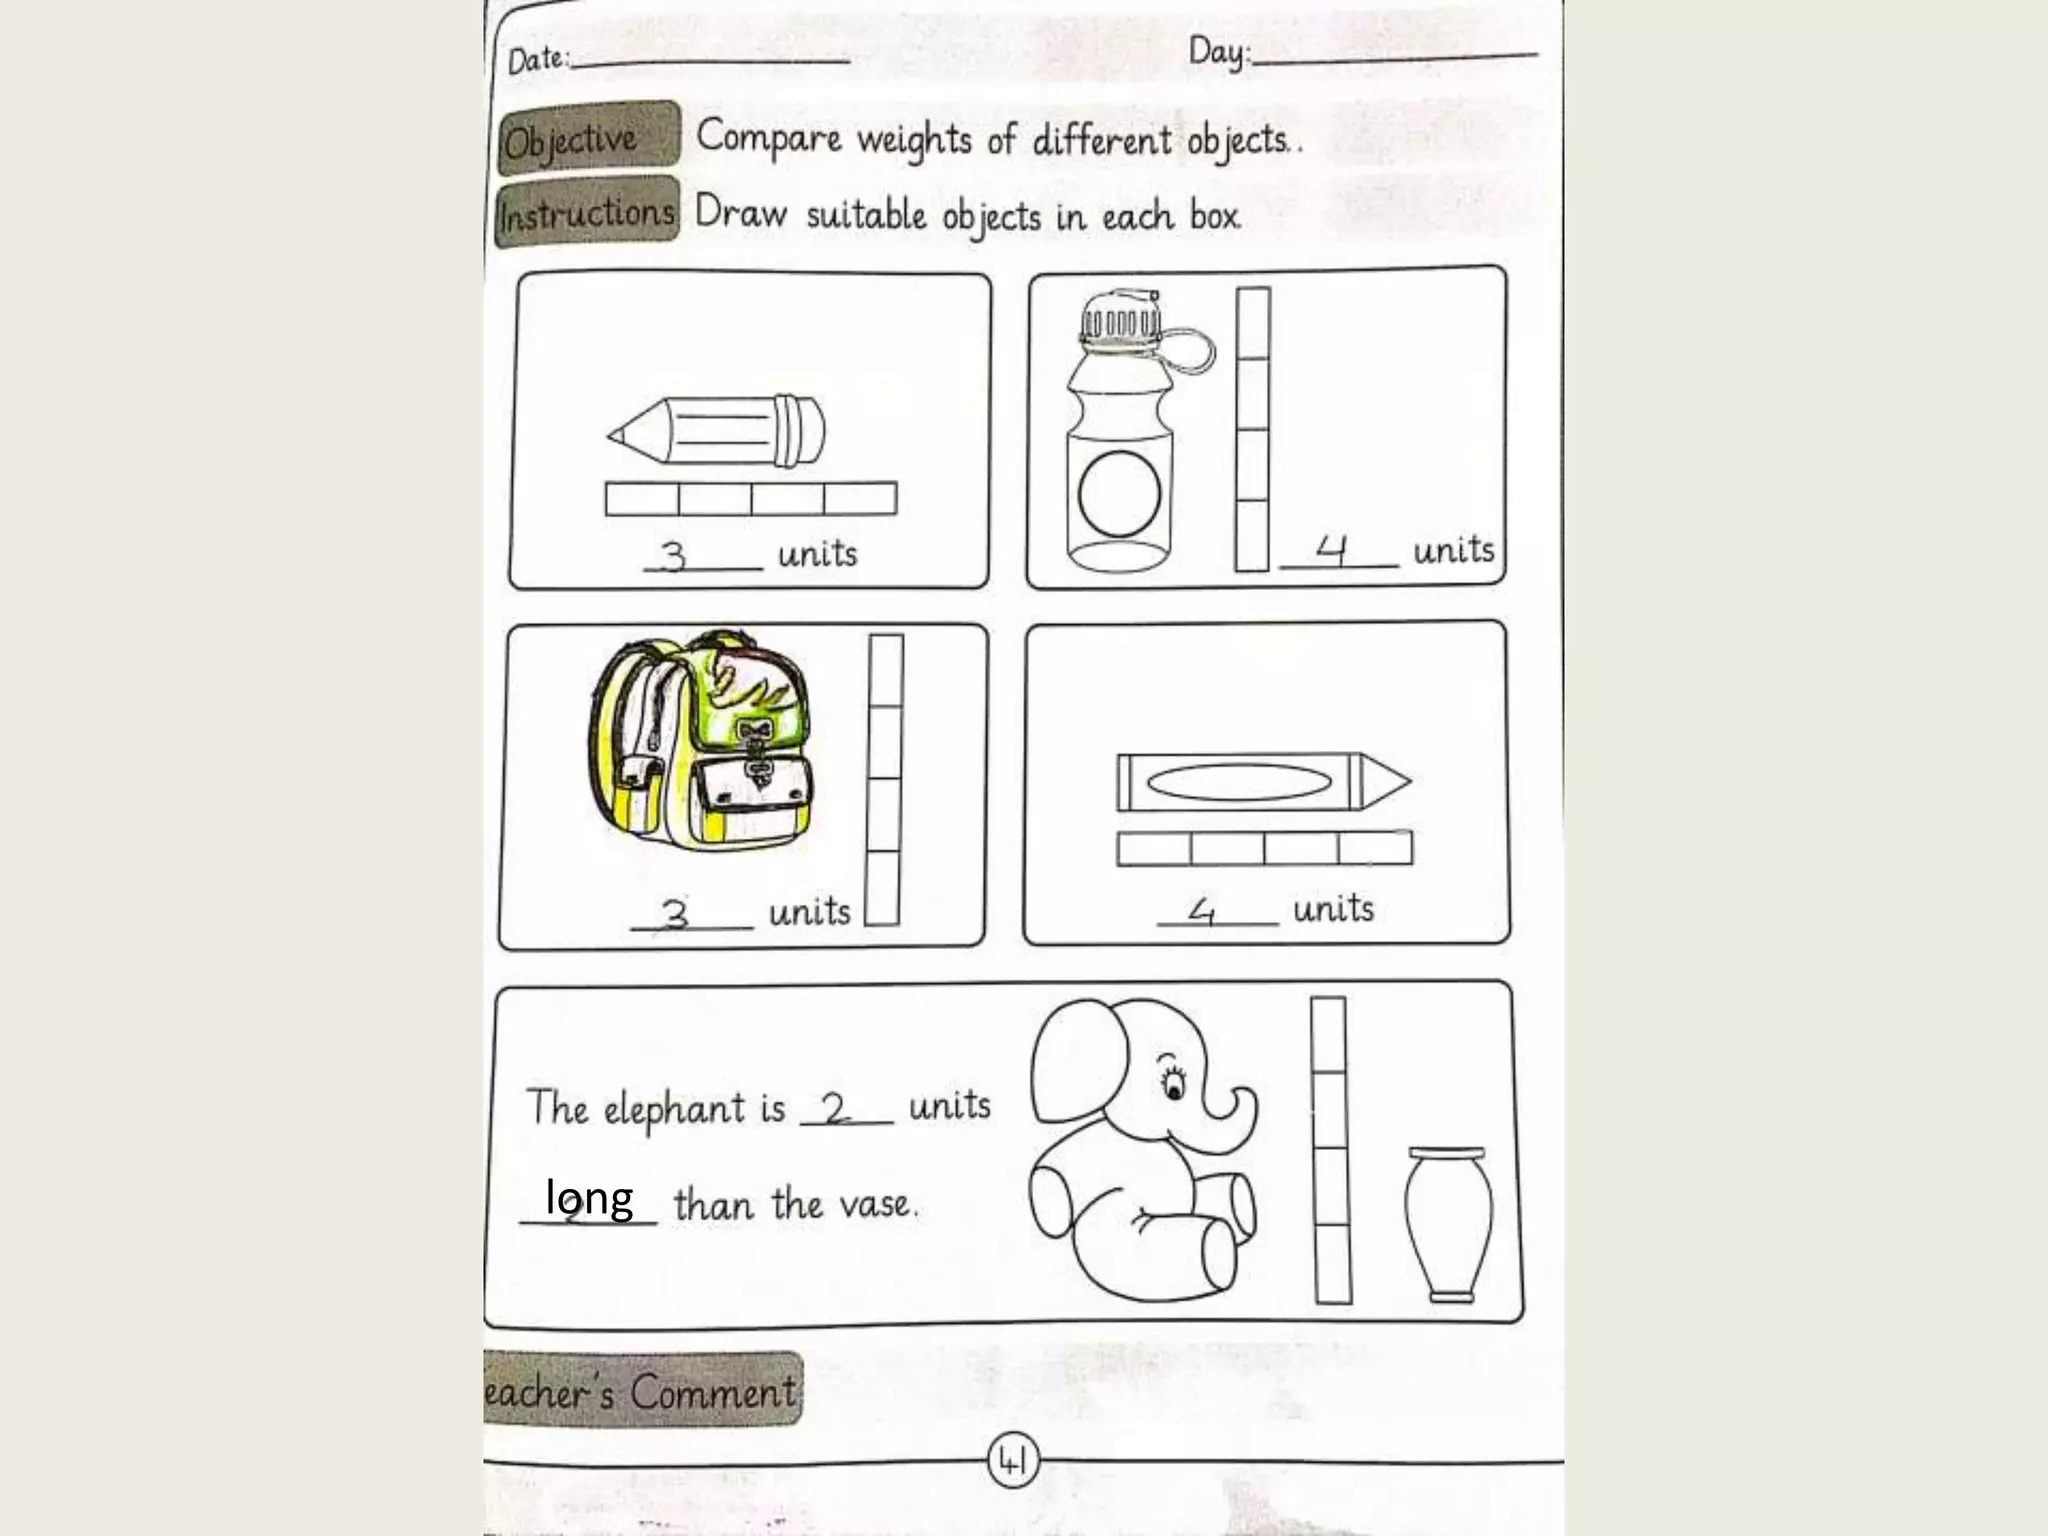 Date: Day:
Objective Compare weights of different objects..
Instructions Draw suitable objects in each box.
3 units
4 units
3 units
4 units
The elephant is 2 units
long than the vase.
eacher's Comment
41